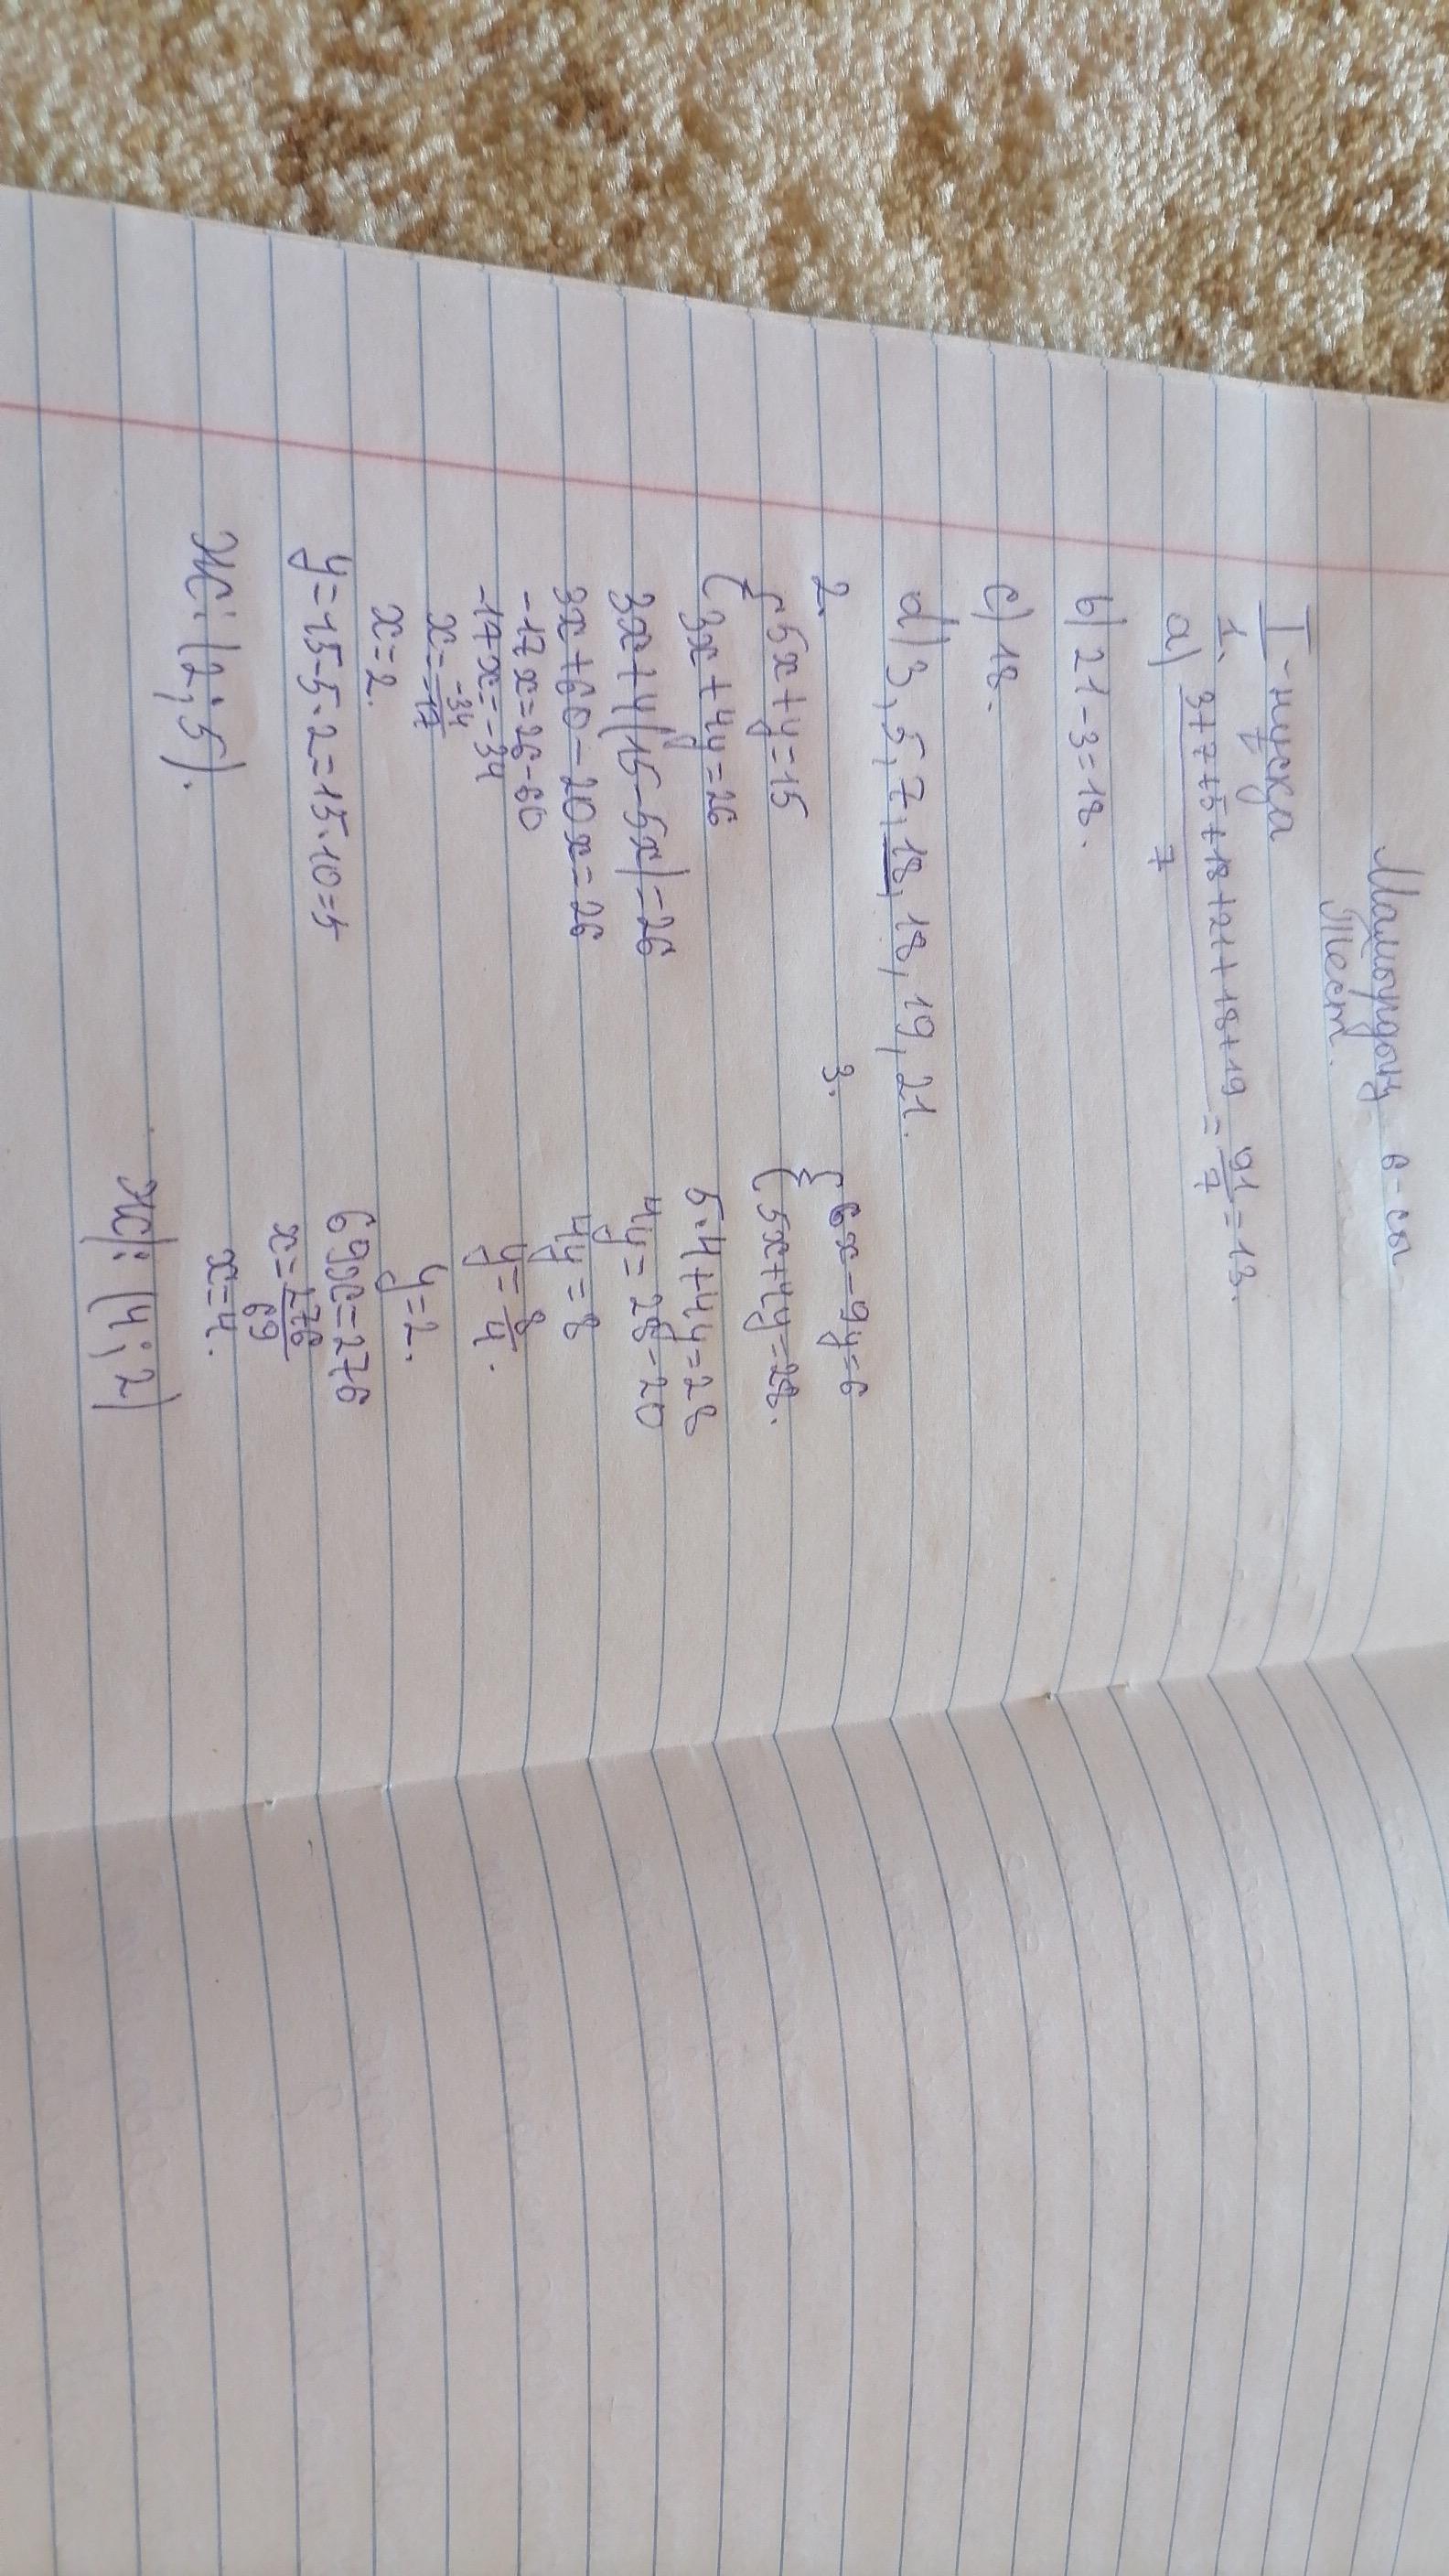 Мамырдың 6-сы
Тест.
I-нұсқа
1.
a) 3+7+5+18+21+18+19 / 7 = 91/7 = 13.
b) 21-3=18.
c) 18.
d) 3, 5, 7, 18, 18, 19, 21.
2.
{ 5x+y=15
3x+4y=26
3x+4(15-5x)=26
3x+60-20x=26
-17x=26-60
-17x=-34
x=-34/-17
x=2.
y=15-5·2=15·10=5
Ж: (2; 5).
3.
{ 6x-9y=6
5x+4y=28.
5·4+4y=28
4y=28-20
4y=8
y=8/4.
y=2.
69x=276
x=276/69
x=4.
Ж: (4; 2)